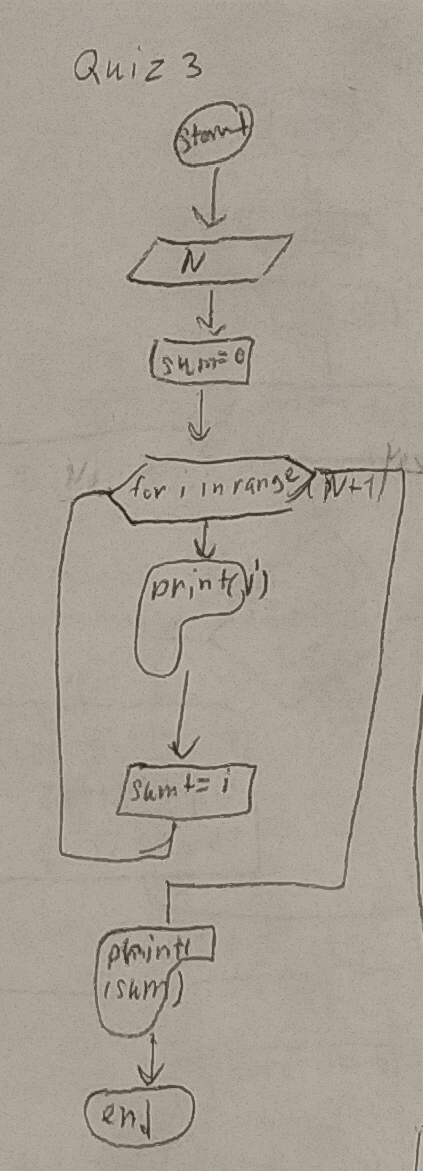 Quiz 3
start
N
sum=0
for i in range(N+1)
print(i)
sum+=i
print(
sum)
end